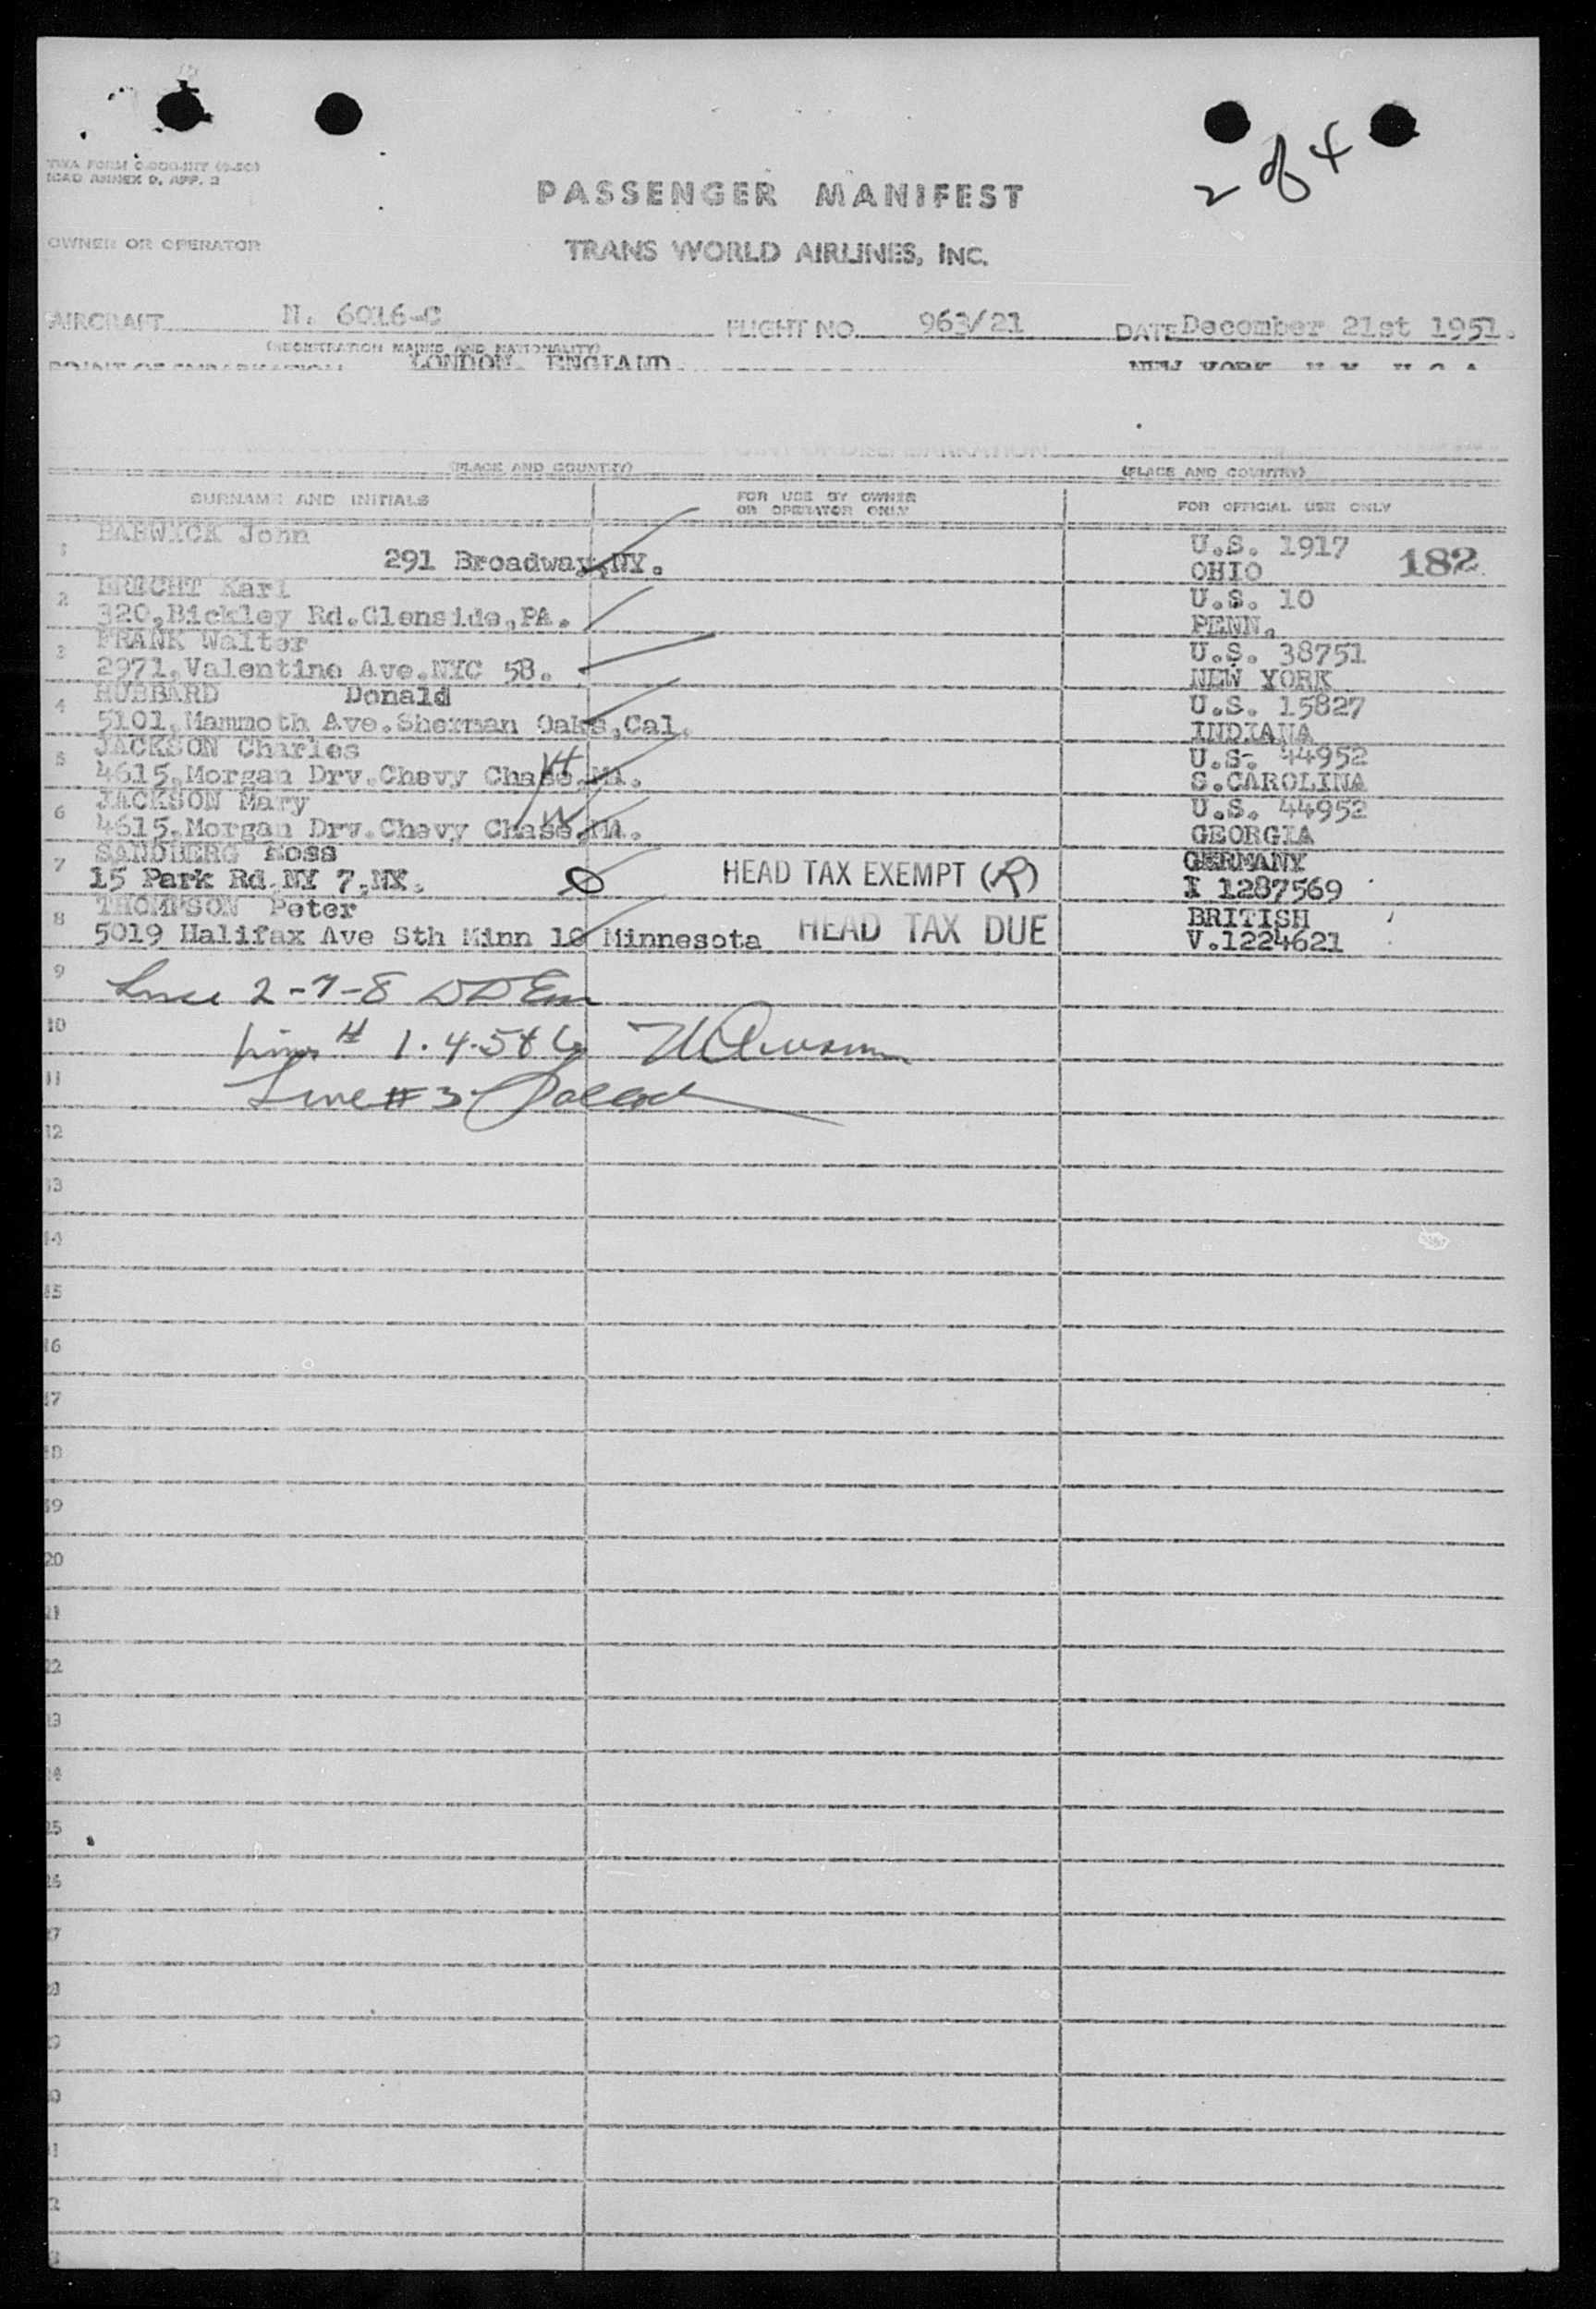 2 of 4
ICAO ANNEX 9, APP. 2
PASSENGER MANIFEST
OWNER OR OPERATOR
TRANS WORLD AIRLINES, INC.
AIRCRAFT N. 6016-C FLIGHT NO. 963/21 DATE December 21st 1951.
(REGISTRATION MARKS AND NATIONALITY)
POINT OF EMBARKATION LONDON, ENGLAND. NEW YORK, N.Y. U.S.A.
POINT OF DISEMBARKATION
(PLACE AND COUNTRY) (PLACE AND COUNTRY)
SURNAME AND INITIALS FOR USE BY OWNER OR OPERATOR ONLY FOR OFFICIAL USE ONLY
1 BARWICK John U.S. 1917 182
291 Broadway, NY. OHIO
2 BRECHT Karl U.S. 10
320, Bickley Rd. Glenside, PA. PENN.
3 FRANK Walter U.S. 38751
2971, Valentine Ave. NYC 58. NEW YORK
4 HUBBARD Donald U.S. 15827
5101, Mammoth Ave. Sherman Oaks, Cal. INDIANA
5 JACKSON Charles U.S. 44952
4615, Morgan Drv. Chevy Chase, MA. H S.CAROLINA
6 JACKSON Mary U.S. 44952
4615, Morgan Drv. Chevy Chase, MA. W GEORGIA
7 SANDBERG GERMANY
15 Park Rd. NY 7, NY. HEAD TAX EXEMPT (R) I 1287569
8 THOMPSON Peter BRITISH
5019 Halifax Ave Sth Minn 10 Minnesota HEAD TAX DUE V.1224621
9 2-7-8
10 1.4.5 + 6
11 Line # 3
12
13
14
15
16
17
18
19
20
21
22